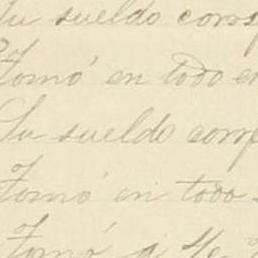 Su sueldo comp
Tomó en todo e
Su sueldo comp
Tomó en todo
Tomó á